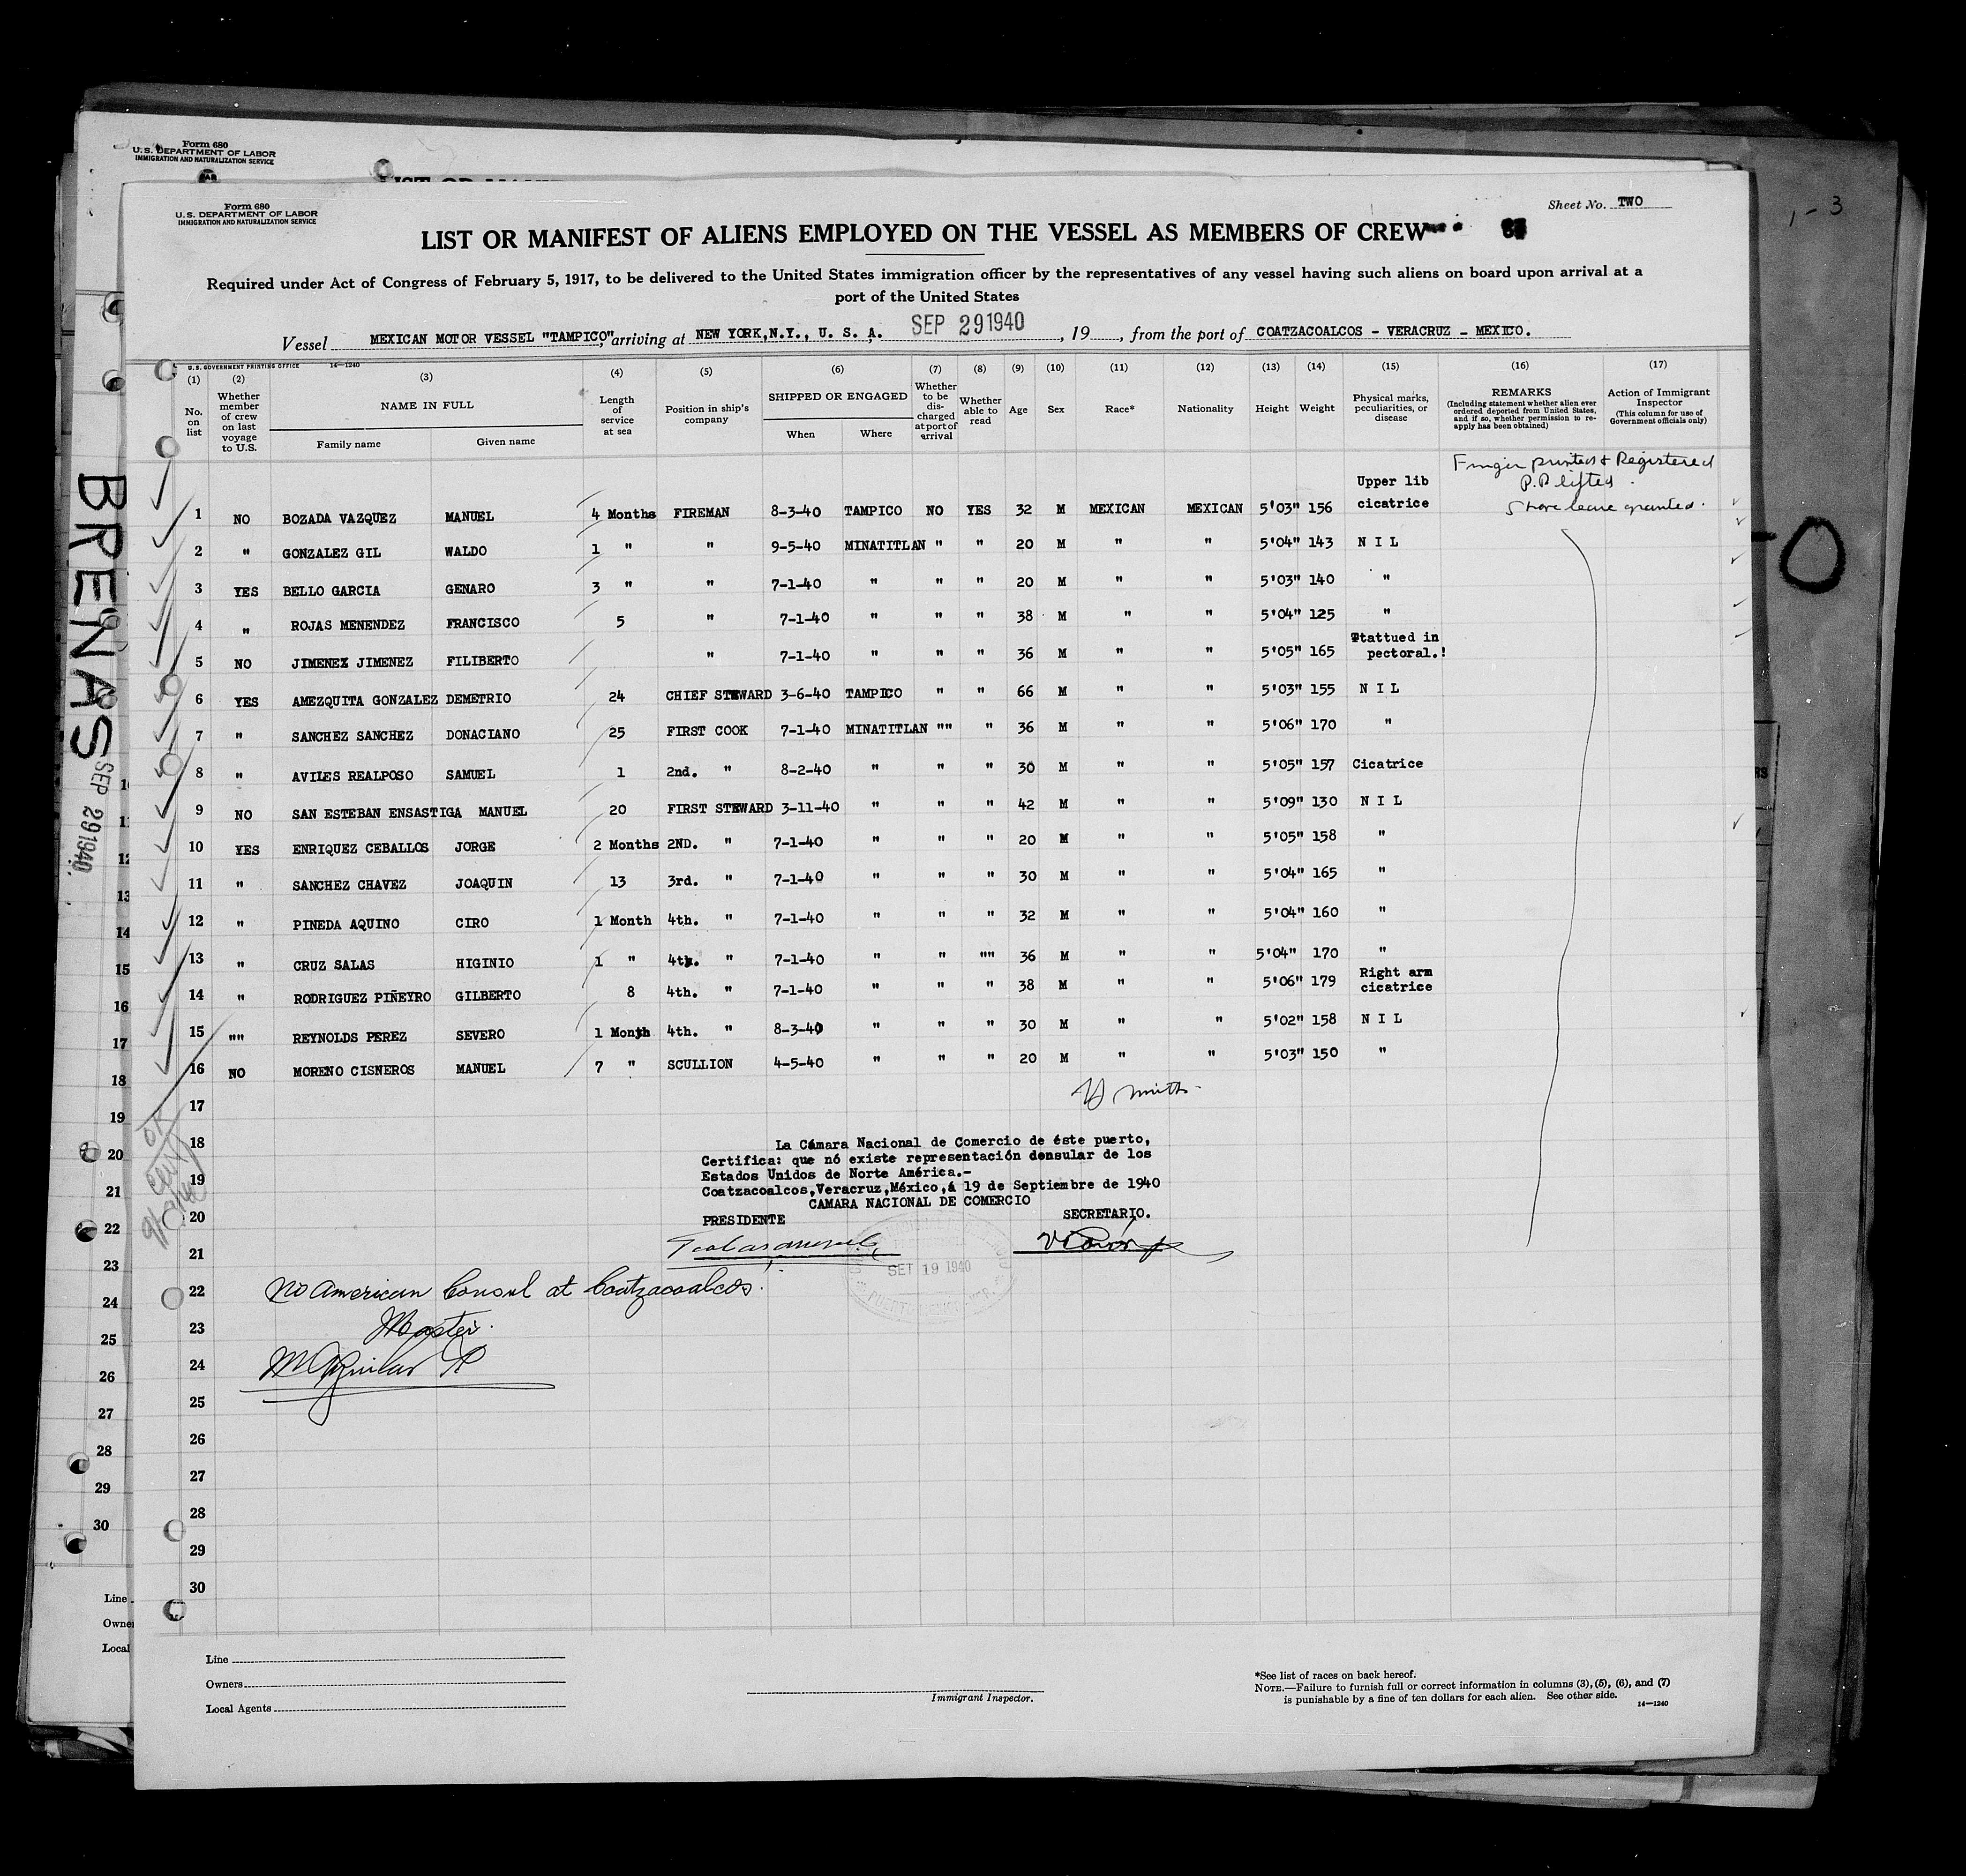 Form 680
U. S. DEPARTMENT OF LABOR
IMMIGRATION AND NATURALIZATION SERVICE
Form 680
U. S. DEPARTMENT OF LABOR
IMMIGRATION AND NATURALIZATION SERVICE
Sheet No. TWO
1-3
LIST OR MANIFEST OF ALIENS EMPLOYED ON THE VESSEL AS MEMBERS OF CREW
Required under Act of Congress of February 5, 1917, to be delivered to the United States immigration officer by the representatives of any vessel having such aliens on board upon arrival at a
port of the United States
Vessel MEXICAN MOTOR VESSEL "TAMPICO", arriving at NEW YORK,N.Y., U. S. A. SEP 29 1940, 19, from the port of COATZACOALCOS - VERACRUZ - MEXICO.
U. S. GOVERNMENT PRINTING OFFICE 14-1240
(1) (2) (3) (4) (5) (6) (7) (8) (9) (10) (11) (12) (13) (14) (15) (16) (17)
No. on list
Whether member of crew on last voyage to U.S.
NAME IN FULL
Family name Given name
Length of service at sea
Position in ship's company
SHIPPED OR ENGAGED
When Where
Whether to be discharged at port of arrival
Whether able to read
Age
Sex
Race*
Nationality
Height
Weight
Physical marks, peculiarities, or disease
REMARKS
(Including statement whether alien ever ordered deported from United States, and if so, whether permission to reapply has been obtained)
Action of Immigrant Inspector
(This column for use of Government officials only)
Finger printed & Registered
P.P. lifted
Shore leave granted.
1 NO BOZADA VAZQUEZ MANUEL 4 Months FIREMAN 8-3-40 TAMPICO NO YES 32 M MEXICAN MEXICAN 5'03" 156 Upper lib cicatrice
2 " GONZALEZ GIL WALDO 1 " " 9-5-40 MINATITLAN " " 20 M " " 5'04" 143 N I L
3 YES BELLO GARCIA GENARO 3 " " 7-1-40 " " " 20 M " " 5'03" 140 "
4 " ROJAS MENENDEZ FRANCISCO 5 " 7-1-40 " " " 38 M " " 5'04" 125 "
5 NO JIMENEZ JIMENEZ FILIBERTO " 7-1-40 " " " 36 M " " 5'05" 165 Ttattued in pectoral.!
6 YES AMEZQUITA GONZALEZ DEMETRIO 24 CHIEF STEWARD 3-6-40 TAMPICO " " 66 M " " 5'03" 155 N I L
7 " SANCHEZ SANCHEZ DONACIANO 25 FIRST COOK 7-1-40 MINATITLAN "" " 36 M " " 5'06" 170 "
8 " AVILES REALPOSO SAMUEL 1 2nd. " 8-2-40 " " " 30 M " " 5'05" 157 Cicatrice
9 NO SAN ESTEBAN ENSASTIGA MANUEL 20 FIRST STEWARD 3-11-40 " " " 42 M " " 5'09" 130 N I L
10 YES ENRIQUEZ CEBALLOS JORGE 2 Months 2ND. " 7-1-40 " " " 20 M " " 5'05" 158 "
11 " SANCHEZ CHAVEZ JOAQUIN 13 3rd. " 7-1-40 " " " 30 M " " 5'04" 165 "
12 " PINEDA AQUINO CIRO 1 Month 4th. " 7-1-40 " " " 32 M " " 5'04" 160 "
13 " CRUZ SALAS HIGINIO 1 " 4th. " 7-1-40 " " "" 36 M " " 5'04" 170 "
14 " RODRIGUEZ PIÑEYRO GILBERTO 8 4th. " 7-1-40 " " " 38 M " " 5'06" 179 Right arm cicatrice
15 "" REYNOLDS PEREZ SEVERO 1 Month 4th. " 8-3-40 " " " 30 M " " 5'02" 158 N I L
16 NO MORENO CISNEROS MANUEL 7 " SCULLION 4-5-40 " " " 20 M " " 5'03" 150 "
17
18
19
20
21
22
23
24
25
26
27
28
29
30
La Cámara Nacional de Comercio de éste puerto,
Certifica: que nó existe representación densular de los
Estados Unidos de Norte América.-
Coatzacoalcos,Veracruz,México,á 19 de Septiembre de 1940
CAMARA NACIONAL DE COMERCIO
PRESIDENTE SECRETARIO.
SET 19 1940
No American Consul at Coatzacoalcos.
Master.
M Aguilar R
Line
Owners
Local Agents
Immigrant Inspector.
*See list of races on back hereof.
NOTE.—Failure to furnish full or correct information in columns (3), (5), (6), and (7)
is punishable by a fine of ten dollars for each alien. See other side.
14-1240
BRENAS
SEP 29 1940
12
13
14
15
16
17
18
19
20
21
22
23
24
25
26
27
28
29
30
Line
Owner
Local